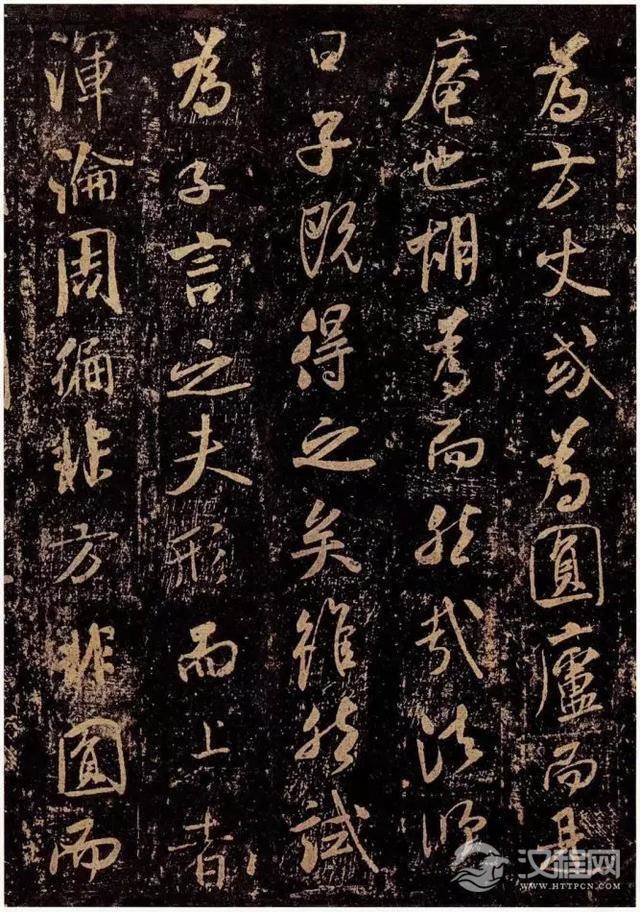 為方丈或為圓廬而其
庵也胡為而然哉法師
曰子既得之矣雖然試
為子言之夫形而上者
渾淪周徧非方非圓而
汉程网
WWW.HTTPCN.COM